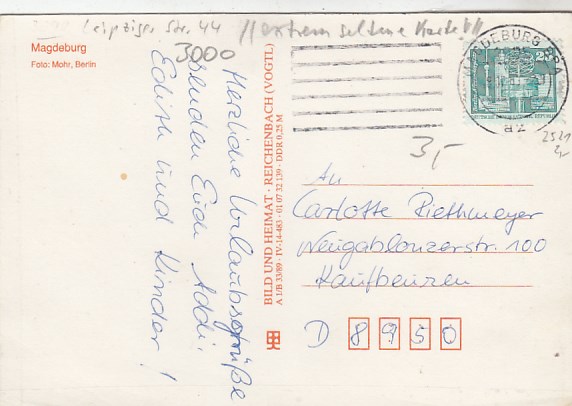 Leipziger Str. 44 // extrem seltene Karte !!!
3000
Magdeburg
Foto: Mohr, Berlin
Herzliche Urlaubsgrüße
senden Euch Addi,
Edith und Kinder!
BILD UND HEIMAT · REICHENBACH (VOGTL)
A 1/B 33/89 · IV-14-483 · 01 07 32 139 · DDR 0,25 M
MAGDEBURG BPA
25
3,-
2521
An
Carlotte Riethmeyer
Neugablonzerstr. 100
Kaufbeuren
D 8950